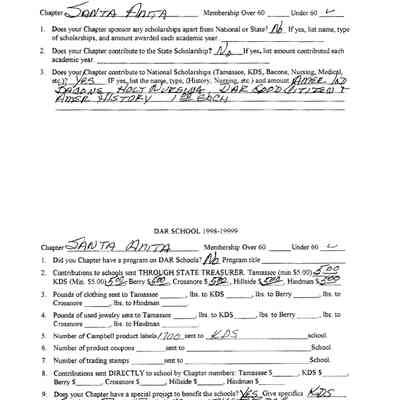 Chapter SANTA ANITA Membership Over 60 ____ Under 60 ✓
1. Does your Chapter sponsor any scholarships apart from National or State? No If yes, list name, type
of scholarships, and amount awarded each academic year.
2. Does your Chapter contribute to the State Scholarship? No If yes, list amount contributed each
academic year.
3. Does your Chapter contribute to National Scholarships (Tamassee, KDS, Bacone, Nursing, Medical,
etc)? Yes IF yes, list the name, type, (History, Nursing, etc) and amount AMER IND
BACONE, HOLT NURSING, DAR GOOD CITIZEN &
AMER HISTORY EACH
DAR SCHOOL 1998-19999
Chapter SANTA ANITA Membership Over 60 ____ Under 60 ✓
1. Did you Chapter have a program on DAR Schools? No Program title
2. Contributions to schools sent THROUGH STATE TREASURER. Tamassee (min $5.00) 5.00
KDS (Min. $5.00) 5.00 Berry $ 5.00, Crossnore $ 5.00, Hillside $ 5.00, Hindman $ 5.00
3. Pounds of clothing sent to Tamassee ____, lbs. to KDS ____, lbs. to Berry ____, lbs. to
Crossnore ____ lbs. to Hindman
4. Pounds of used jewelry sent to Tamassee ____, lbs. to KDS ____, lbs. to Berry ____, lbs. to
Crossnore ____, lbs. to Hindman
5. Number of Campbell product labels 1700 sent to KDS school
6. Number of product coupons ____ sent to ____ School.
7. Number of trading stamps ____ sent to ____ School.
8. Contributions sent DIRECTLY to school by Chapter members: Tamassee $____, KDS $____,
Berry $____ Crossnore $____, Hillside $____, Hindman $____
9. Does your Chapter have a special project to benefit the schools? YES Give specifics KDS